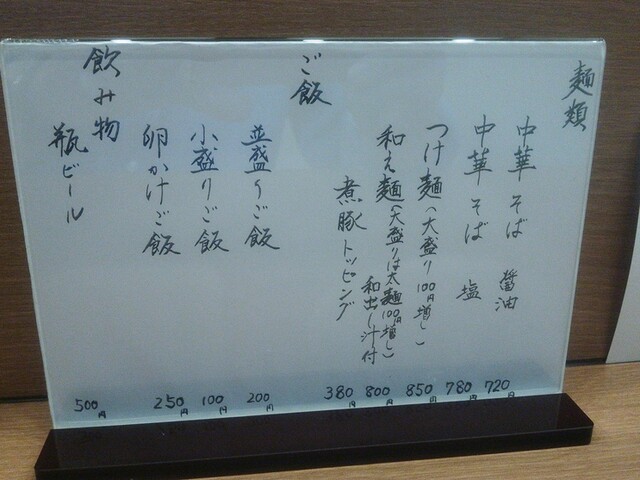 麺類
中華そば 醤油 720円
中華そば 塩 780円
つけ麺(大盛り100円増し) 850円
和え麺(大盛りは太麺100円増し) 800円
和出し汁付
煮豚トッピング 380円
ご飯
並盛りご飯 200円
小盛りご飯 100円
卵かけご飯 250円
飲み物
瓶ビール 500円